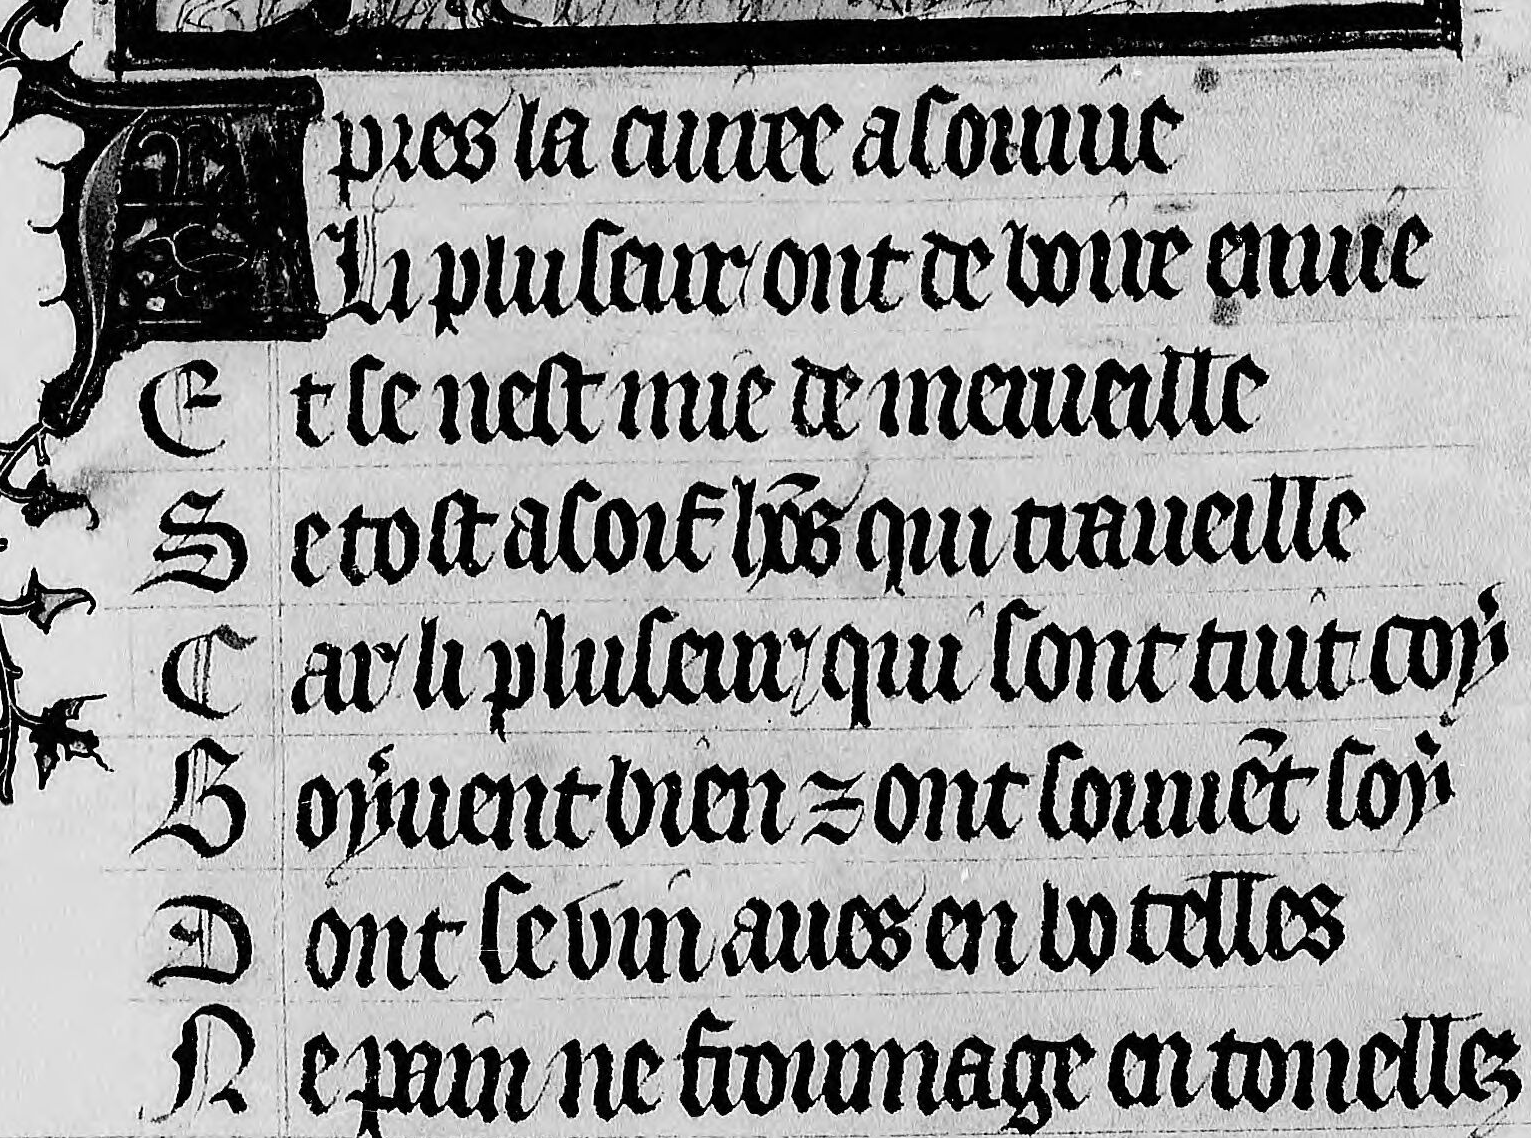 Apres la cuiree asouuie
Li pluseur ont de boire enuie
Et se nest mie de merueille
Se tost a soif hõs qui traueille
Car li pluseur qui sont tuit coy
Boyuent bien ⁊ ont souuēt soy
Dont se vin aues en botelles
Ne pain ne froumage en tonellez